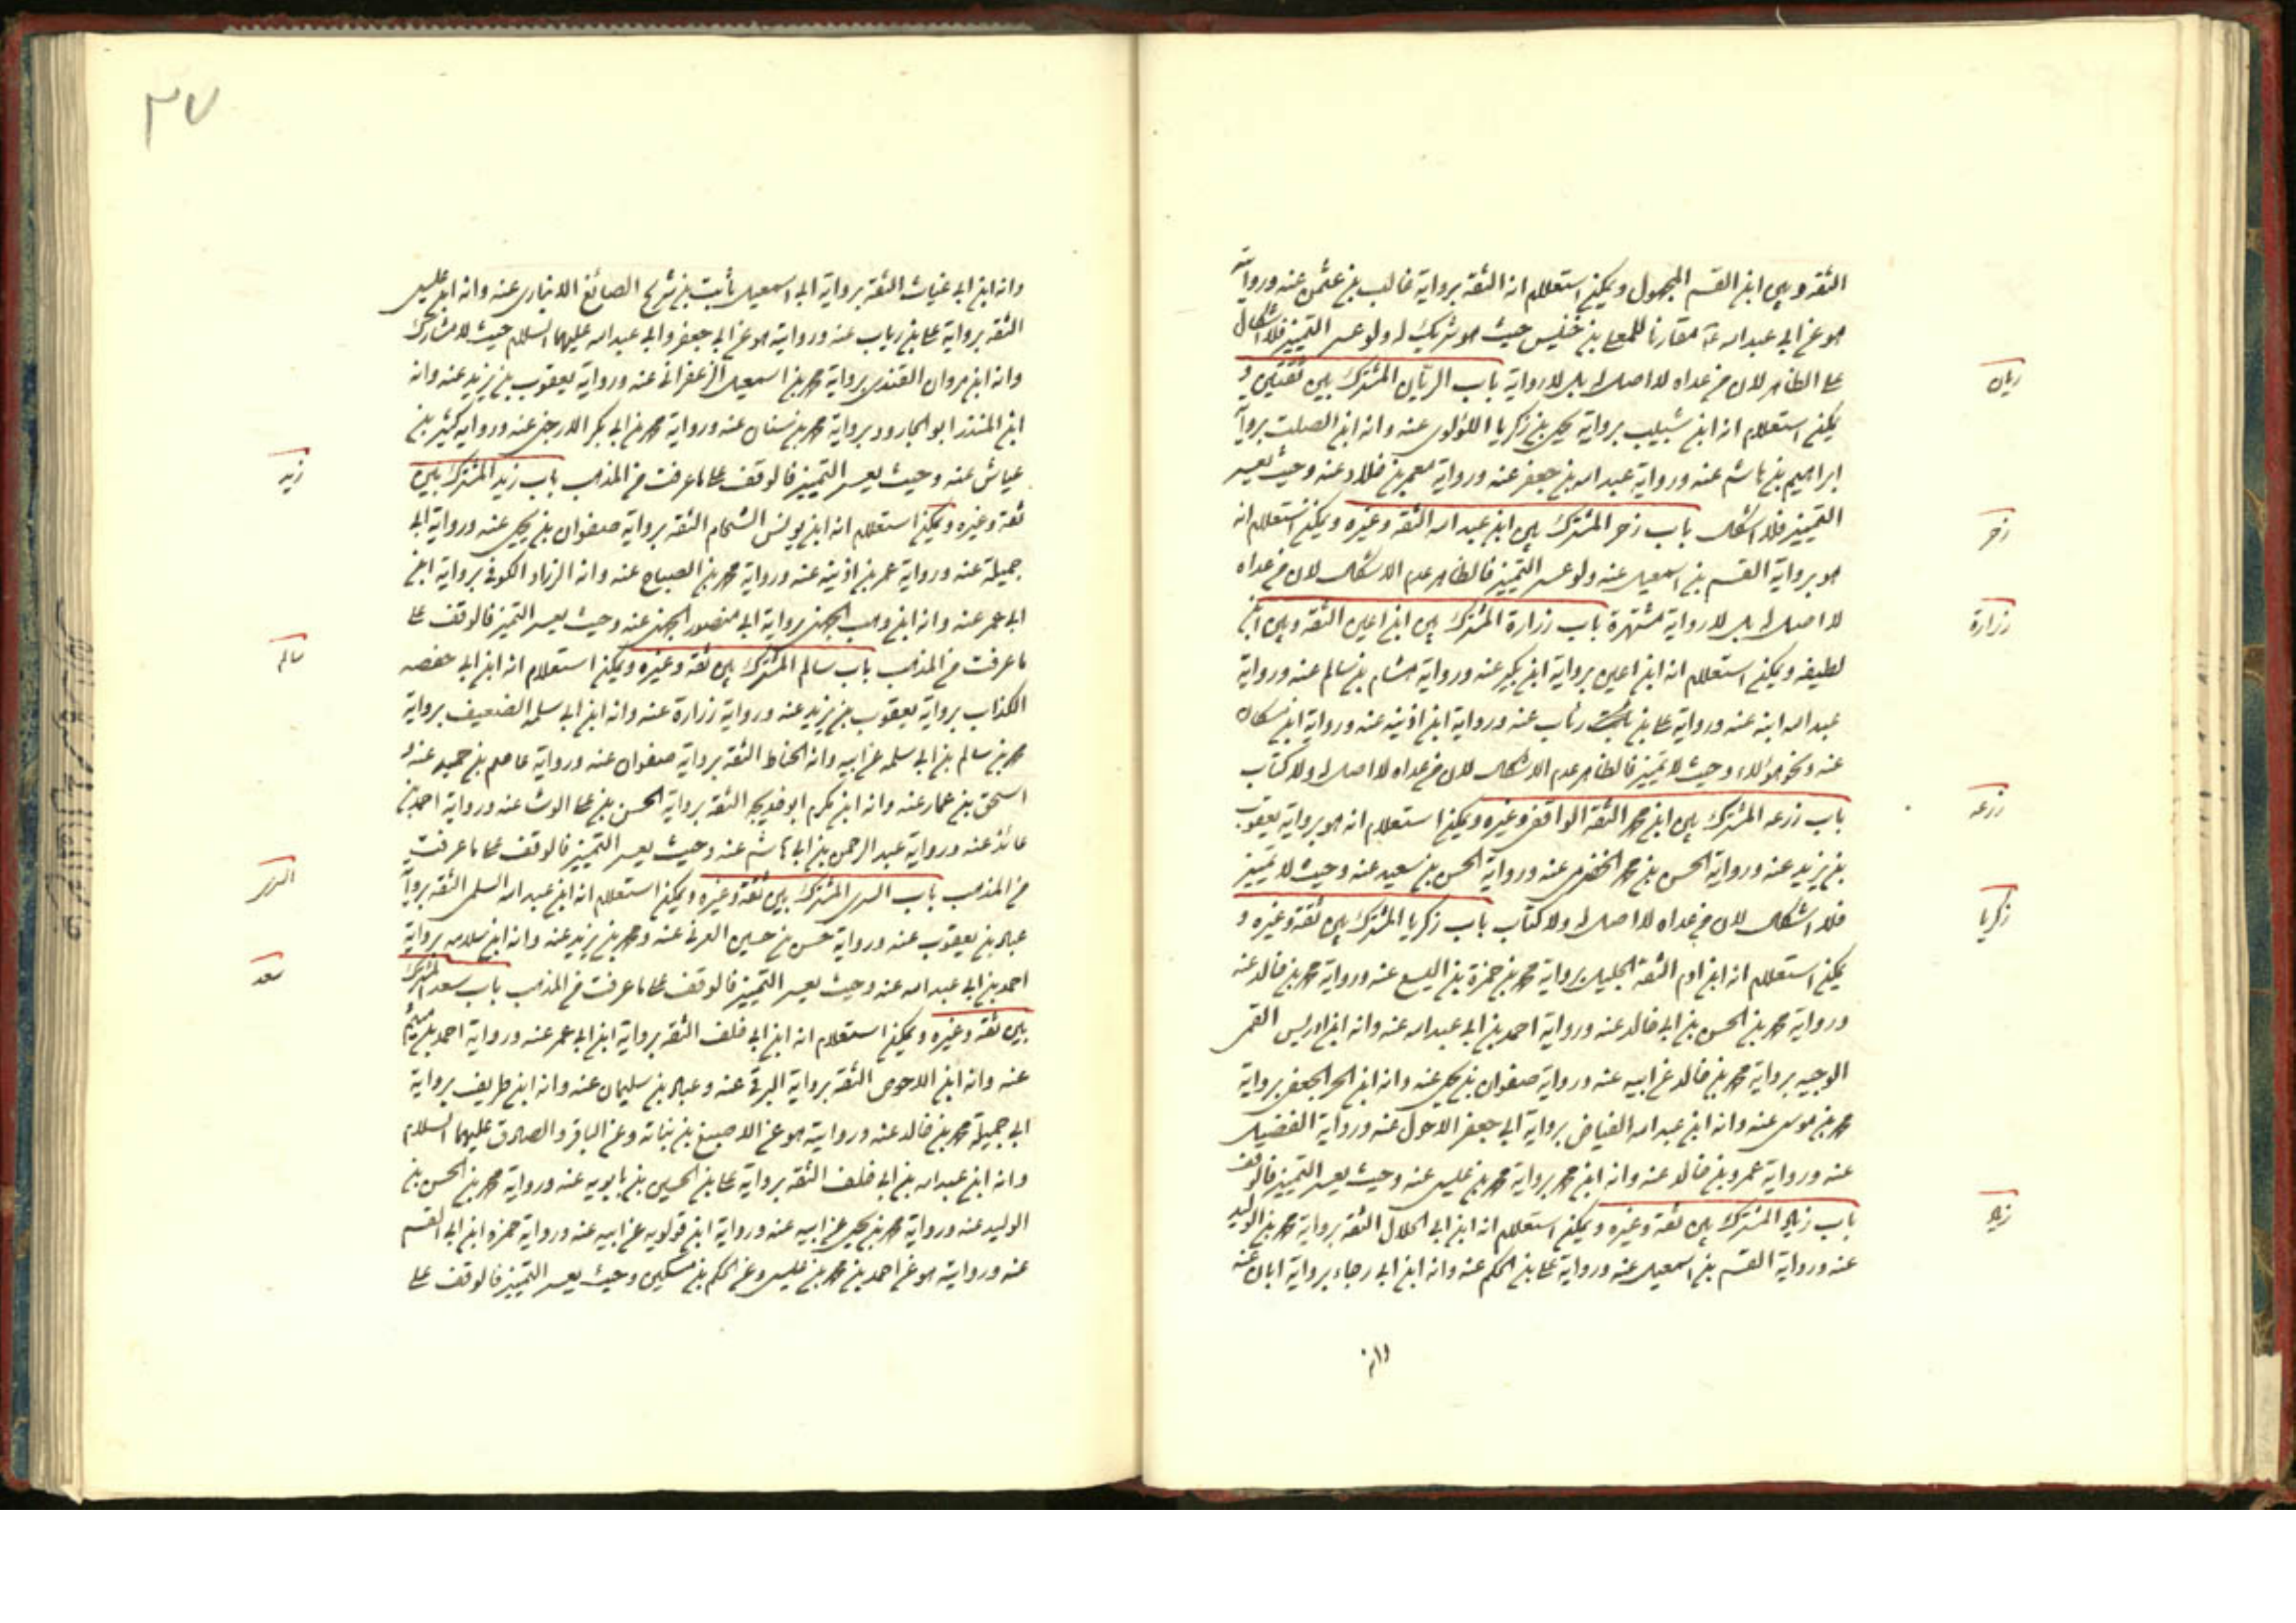 الثقة وبين ابن القسم المجهول ويمكن استعلام انه الثقة برواية غالب بن عثمن عنه وروايته
هو عن ابي عبد الله ع مقارنا للمعلى بن خنيس حيث هو شريك له ولو عسر التميز فلا اشكال
على الظاهر لان من عداه لا اصل له بل لا رواية باب الريان المشترك بين ثقتين و
ريان
يمكن استعلام انه ابن شبيب برواية يحيى بن زكريا اللؤلوى عنه وانه ابن الصلت برواية
ابراهيم بن هاشم عنه ورواية عبد الله بن جعفر عنه ورواية معمر بن خلاد عنه وحيث يعسر
التميز فلا اشكال باب زحر المشترك بين ابن عبد الله الثقة وغيره ويمكن استعلام انه
زحر
هو برواية القسم بن اسمعيل عنه ولو عسر التميز فالظاهر عدم الاشكال لان من عداه
لا اصل له بل لا رواية مشتهرة باب زرارة المشترك بين ابن اعين الثقة وبين ابن
زرارة
لطيفه ويمكن استعلام انه ابن اعين برواية ابن بكير عنه ورواية هشام بن سالم عنه ورواية
عبد الله ابنه عنه ورواية على بن رئاب عنه ورواية ابن اذينه عنه ورواية ابن مسكان
عنه ونحو هؤلاء وحيث لا تميز فالظاهر عدم الاشكال لان من عداه لا اصل له ولا كتاب
باب زرعه المشترك بين ابن محمد الثقة الواقفى وغيره ويمكن استعلام انه هو برواية يعقوب
زرعه
بن يزيد عنه ورواية الحسن بن محمد الحضرمى عنه ورواية الحسن بن سعيد عنه وحيث لا تميز
فلا اشكال لان من عداه لا اصل له ولا كتاب باب زكريا المشترك بين ثقة وغيره و
زكريا
يمكن استعلام انه ابن ادم الثقة الجليل برواية محمد بن حمزة بن اليسع عنه ورواية محمد بن خالد عنه
ورواية محمد بن الحسن بن ابي خالد عنه ورواية احمد بن ابي عبد الله عنه وانه ابن ادريس القمى
الوجيه برواية محمد بن خالد عن ابيه عنه ورواية صفوان بن يحيى عنه وانه ابن الحر الجعفى برواية
محمد بن موسى عنه وانه ابن عبد الله الفياض برواية ابي جعفر الاحول عنه ورواية الفضيل
عنه ورواية عمرو بن خالد عنه وانه ابن محمد برواية محمد بن عيسى عنه وحيث يعسر التميز فالوقف
باب زياد المشترك بين ثقة وغيره ويمكن استعلام انه ابن ابي الحلال الثقة برواية محمد بن الوليد
زياد
عنه ورواية القسم بن اسمعيل عنه ورواية على بن الحكم عنه وانه ابن ابي رجاء برواية ابان عنه
وانه
٣٧
وانه ابن ابي غياث الثقة برواية ابي اسمعيل ثابت بن شريح الصائغ الانبارى عنه وانه ابن عيسى
الثقة برواية على بن رياب عنه ورواية هو عن ابي جعفر وابي عبد الله عليهما السلام حيث لا مشارك
وانه ابن مروان القندى برواية محمد بن اسمعيل الزعفرانى عنه ورواية يعقوب بن يزيد عنه وانه
ابن المنذر ابو الجارود برواية محمد بن سنان عنه ورواية محمد بن ابي بكر الارحبى عنه ورواية كثير بن
عياش عنه وحيث يعسر التميز فالوقف على ما عرفت من المذهب باب زيد المشترك بين
زيد
ثقة وغيره ويمكن استعلام انه ابن يونس الشحام الثقة برواية صفوان بن يحيى عنه ورواية ابي
جميلة عنه ورواية عمر بن اذينه عنه ورواية محمد بن الصباح عنه وانه الزراد الكوفى برواية ابن
ابي عمر عنه وانه ابن وهب الجهنى برواية ابي منصور الجهنى عنه وحيث يعسر التميز فالوقف على
ما عرفت من المذهب باب سالم المشترك بين ثقة وغيره ويمكن استعلام انه ابن ابي حفصه
سالم
الكذاب برواية يعقوب بن يزيد عنه ورواية زرارة عنه وانه ابن ابي سلمه الضعيف برواية
محمد بن سالم بن ابي سلمه عن ابيه وانه الحناط الثقة برواية صفوان عنه ورواية عاصم بن حميد عنه و
اسحق بن عمار عنه وانه ابن مكرم ابو خديجه الثقة برواية الحسن بن على الوشا عنه ورواية احمد بن
عائذ عنه ورواية عبد الرحمن بن ابي هاشم عنه وحيث يعسر التميز فالوقف على ما عرفت
من المذهب باب السرى المشترك بين ثقة وغيره ويمكن استعلام انه ابن عبد الله السلمى الثقة برواية
السرى
عباد بن يعقوب عنه ورواية حسن بن حسين العرنى عنه ومحمد بن يزيد عنه وانه ابن سلامه برواية
احمد بن ابي عبد الله عنه وحيث يعسر التميز فالوقف على ما عرفت من المذهب باب سعد المشترك
سعد
بين ثقة وغيره ويمكن استعلام انه ابن ابي خلف الثقة برواية ابن ابي عمر عنه ورواية احمد بن ميثم
عنه وانه ابن الاحوص الثقة برواية البرقى عنه وعباد بن سليمان عنه وانه ابن طريف برواية
ابي جميلة محمد بن خالد عنه وروايته هو عن الاصبغ بن نباته وعن الباقر والصادق عليهما السلام
وانه ابن عبد الله بن ابي خلف الثقة برواية على بن الحسين بن بابويه عنه ورواية محمد بن الحسن بن
الوليد عنه ورواية محمد بن يحيى عن ابيه عنه ورواية ابن قولويه عن ابيه عنه ورواية حمزه ابن ابي القسم
عنه وروايته هو عن احمد بن محمد بن عيسى وعن الحكم بن مسكين وحيث يعسر التميز فالوقف على